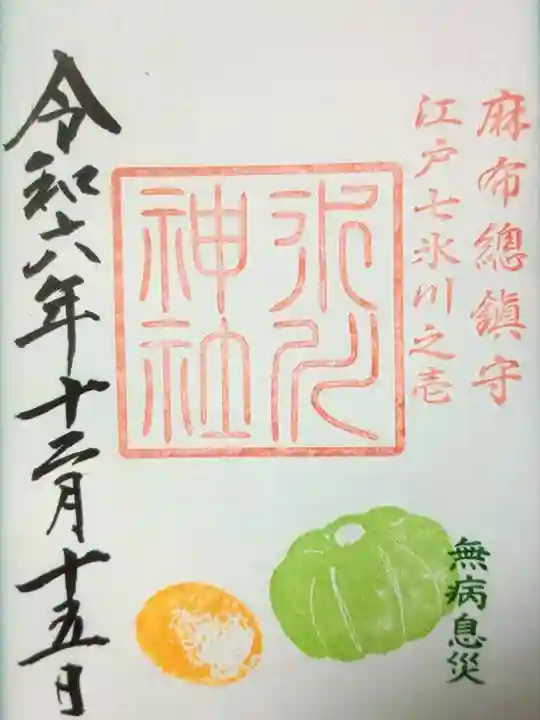 麻布總鎮守
江戸七氷川之壱
氷川
神社
無病息災
令和六年十二月十五日